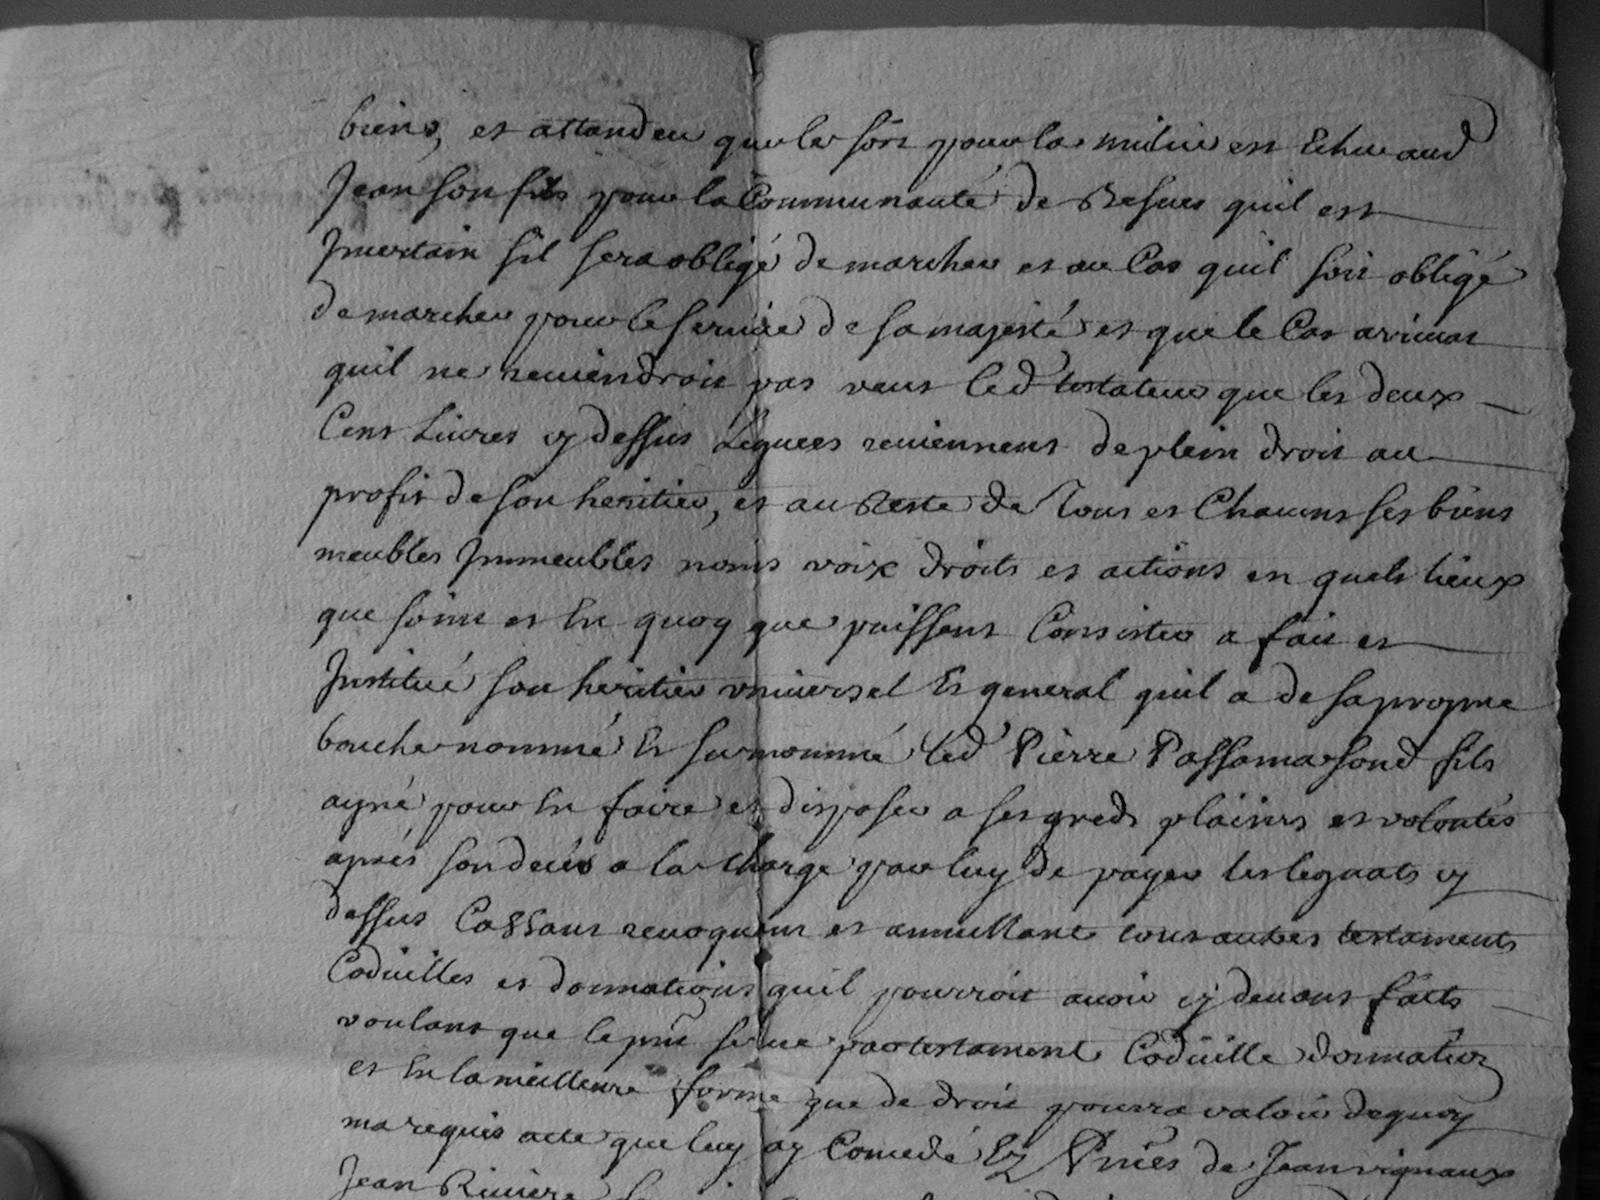 biens, et attandeu que le sort pour la milice est Echu aud
Jean son fils pour la Communauté de Besues quil est
Jncertain sil sera obligé de marcher et au Cas quil soit obligé
de marcher pour le service de sa majesté et que le Cas arrivat
quil ne reviendroit pas veut led testateur que les deux
Cent Livres cy dessus Leguees reviennent de plein droit au
profit de son heritier, et au Reste de Tous et Chacuns ses biens
meubles Jmmeubles noms voix droits et actions en quels lieux
que soint et En quoy que puissent Consister a fait et
Jnstitué son heritier universel Et general quil a de sa propre
bouche nommé Et surnommé led Pierre Passama sond fils
ayné pour En faire et disposer a ses greds plaisirs et volontés
aprés son decés a la Charge par luy de payer les leguats cy
dessus Cassant revoquent et annullant tous autres testaments
Codicilles et donnations quil pourroit avoir cy devant faits
voulant que le pnt serve par testament Codicille donnation
et En la meilleure forme que de droit pourra valoir dequoy
ma requis acte que luy ay Concedé Ez Pnces de Jean vignaux
Jean Riviere